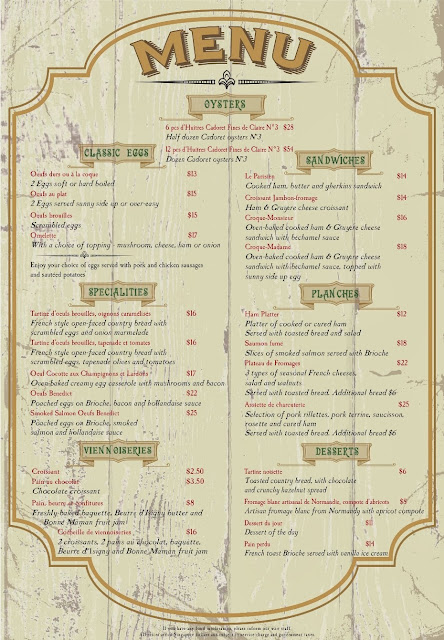 MENU
OYSTERS
6 pcs d'Huitres Cadoret Fines de Claire N°3 $28
Half dozen Cadoret oysters N°3
12 pcs d'Huitres Cadoret Fines de Claire N°3 $54
Dozen Cadoret oysters N°3
CLASSIC EGGS
Oeufs durs ou à la coque $13
2 Eggs soft or hard boiled
Oeufs au plat $15
2 Eggs served sunny side up or over-easy
Oeufs brouilles $15
Scrambled eggs
Omelette $17
With a choice of topping - mushroom, cheese, ham or onion
Enjoy your choice of eggs served with pork and chicken sausages
and sauteed potatoes
SPECIALITIES
Tartine d'oeufs brouilles, oignons caramelises $16
French style open-faced country bread with
scrambled eggs and onion marmelade
Tartine d'oeufs brouilles, tapenade et tomates $16
French style open-faced country bread with
scrambled eggs, tapenade olives and tomatoes
Oeuf Cocotte aux Champignons et Lardons $17
Oven-baked creamy egg casserole with mushrooms and bacon
Oeufs Benedict $22
Poached eggs on Brioche, bacon and hollandaise sauce
Smoked Salmon Oeufs Benedict $25
Poached eggs on Brioche, smoked
salmon and hollandaise sauce
VIENNOISERIES
Croissant $2.50
Pain au chocolat $3.50
Chocolate croissant
Pain, beurre et confitures $8
Freshly-baked baguette, Beurre d'Isigny butter and
Bonne Maman fruit jam
Corbeille de viennoiseries $16
2 croissants, 2 pains au chocolat, baguette,
Beurre d'Isigny and Bonne Maman fruit jam
SANDWICHES
Le Parisien $14
Cooked ham, butter and gherkins sandwich
Croissant Jambon-fromage $14
Ham & Gruyere cheese croissant
Croque-Monsieur $16
Oven-baked cooked ham & Gruyere cheese
sandwich with bechamel sauce
Croque-Madame $18
Oven-baked cooked ham & Gruyere cheese
sandwich with bechamel sauce, topped with
sunny side up egg
PLANCHES
Ham Platter $12
Platter of cooked or cured ham
Served with toasted bread and salad
Saumon fumé $18
Slices of smoked salmon served with Brioche
Plateau de Fromages $22
3 types of seasonal French cheeses,
salad and walnuts
Served with toasted bread. Additional bread $6
Assiette de charcuterie $25
Selection of pork rillettes, pork terrine, saucisson,
rosette and cured ham
Served with toasted bread. Additional bread $6
DESSERTS
Tartine noisette $6
Toasted country bread, with chocolate
and crunchy hazelnut spread
Fromage blanc artisanal de Normandie, compote d'abricots $8
Artisan fromage blanc from Normandy with apricot compote
Dessert du jour $11
Dessert of the day
Pain perdu $14
French toast Brioche served with vanilla ice cream